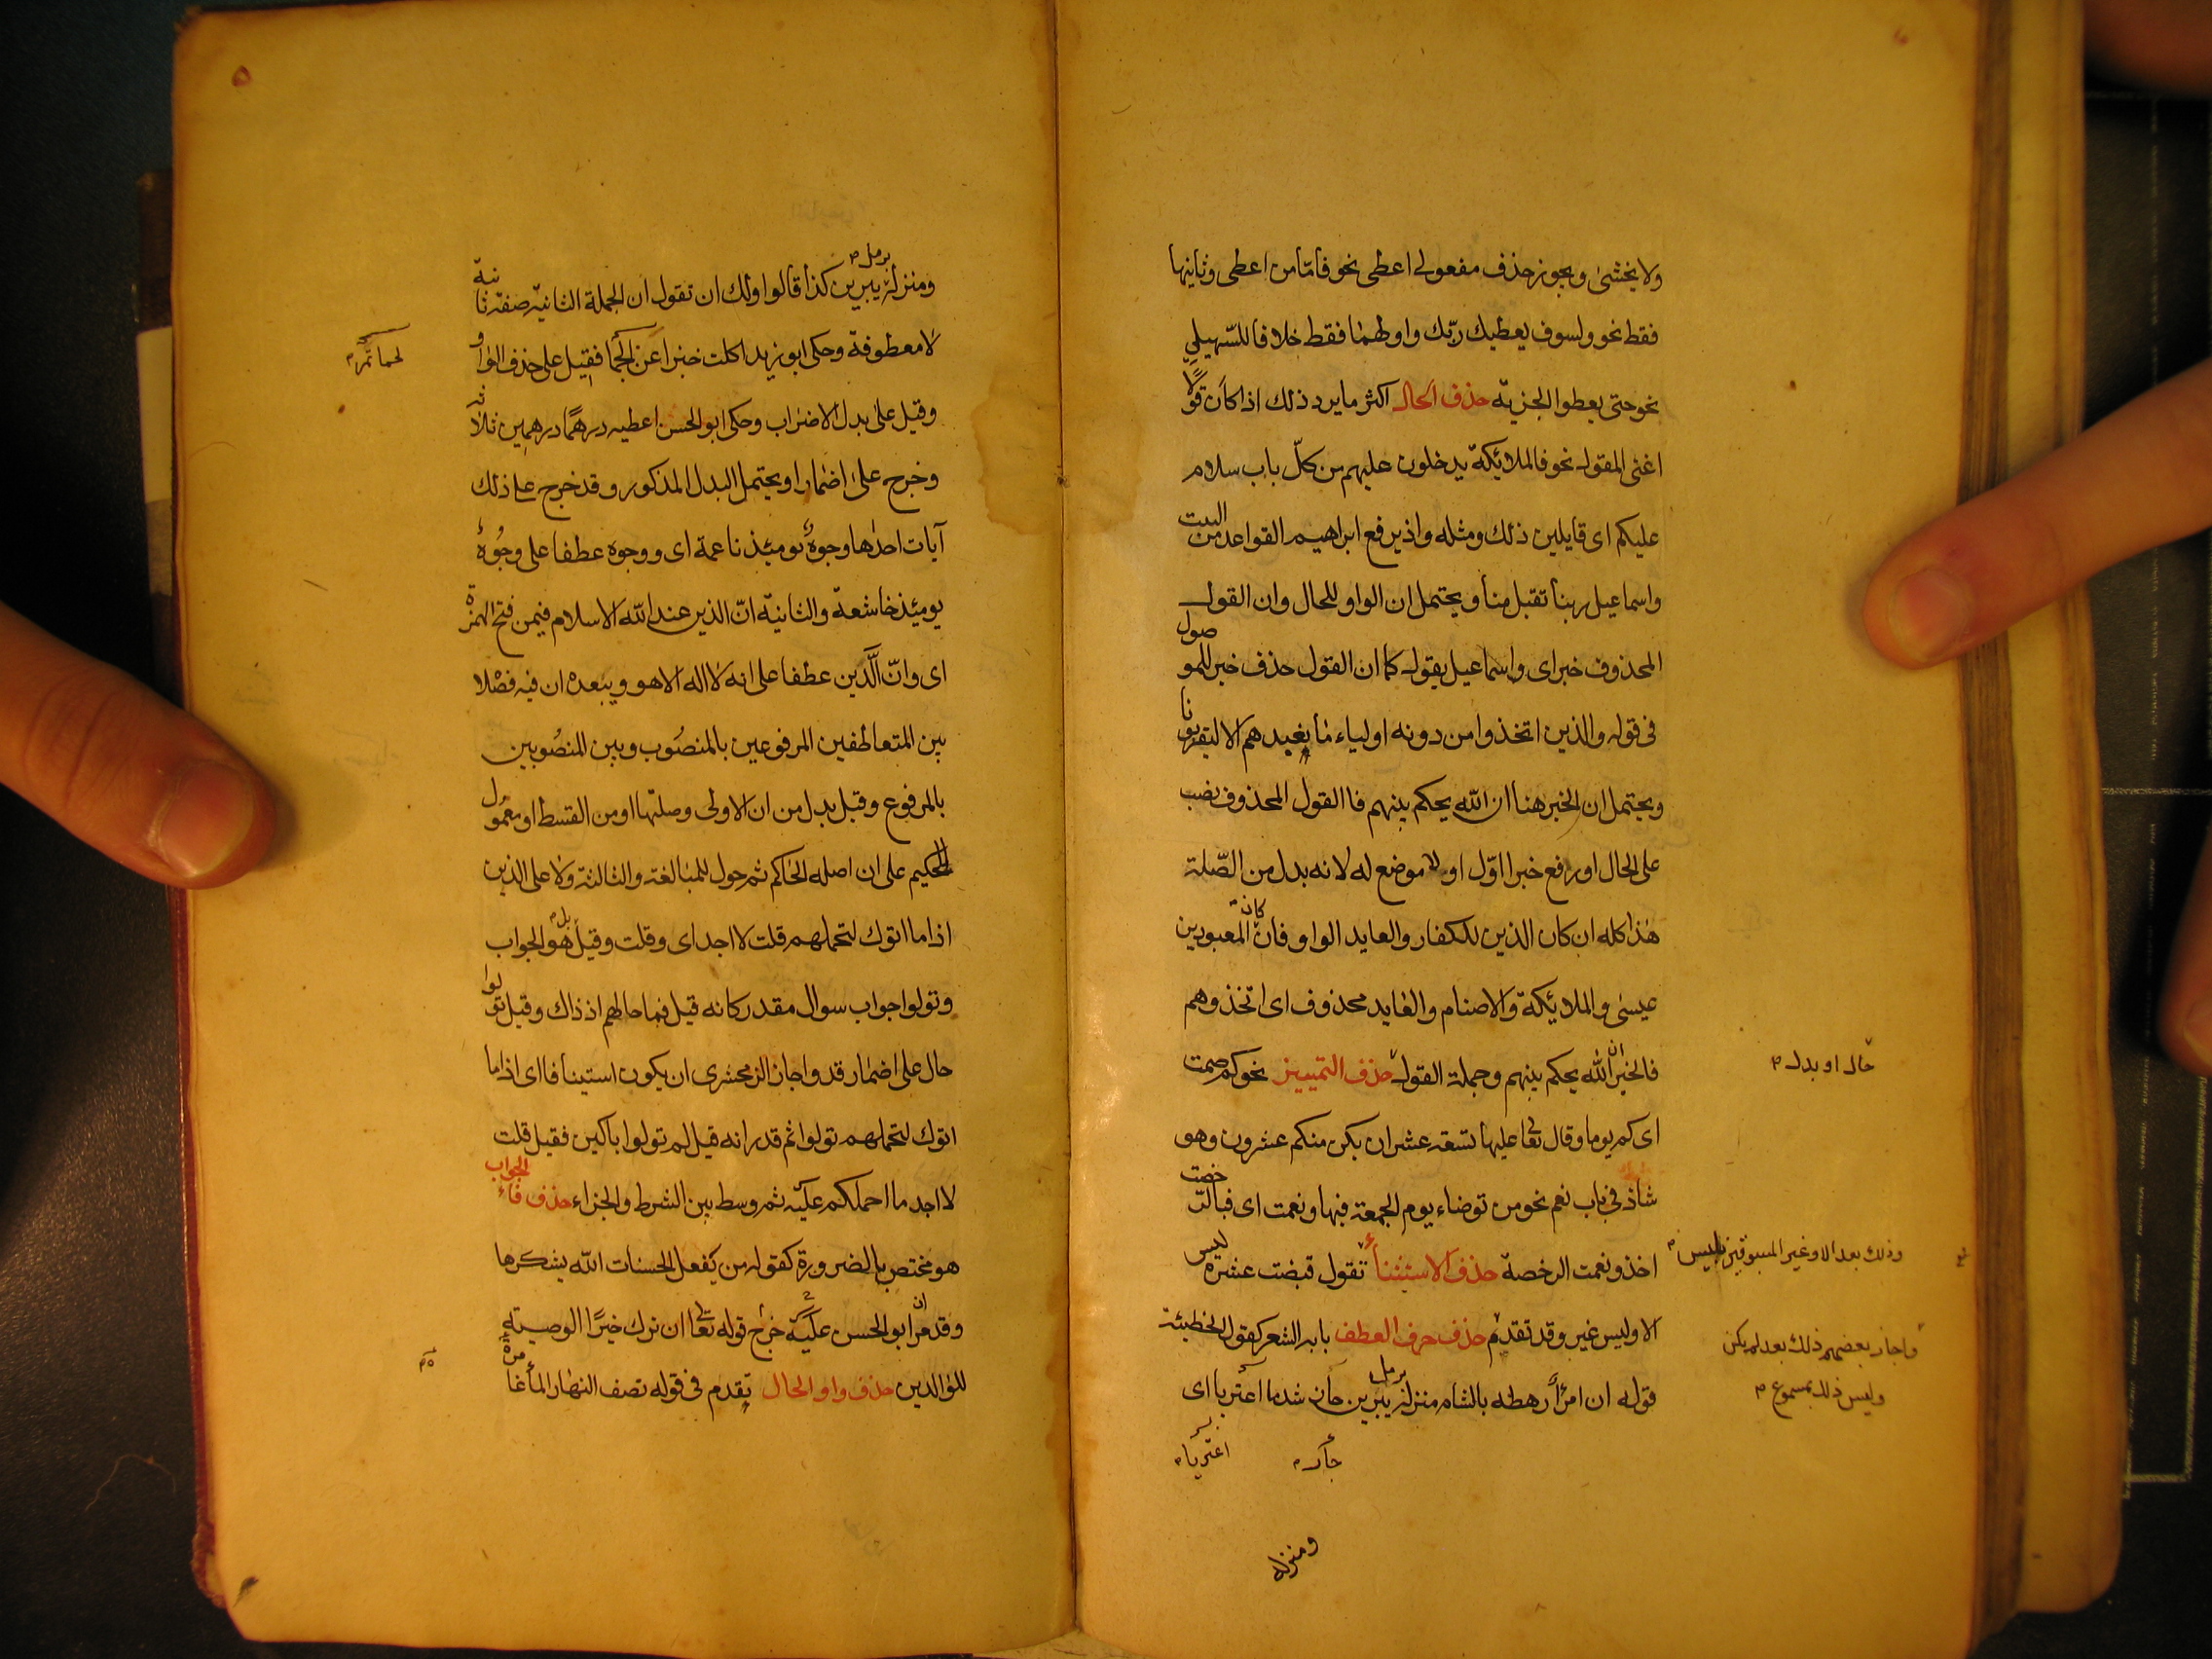 ولا يخشى ويجوز حذف مفعولي اعطى نحو فامّا من اعطى وثانيها
فقط نحو ولسوف يعطيك ربّك واولهما فقط خلافا للسّهيلي
نحو حتى يعطوا الجزية حذف الحال اكثر ما يرد ذلك اذا كان قولًا
اغنى المقول نحو فالملائكة يدخلون عليهم من كلّ باب سلام
عليكم اى قايلين ذلك ومثله واذ يرفع ابراهيم القواعد من البيت
واسماعيل ربنا تقبل منا ويحتمل ان الواو للحال وان القول
المحذوف خبر اى واسماعيل يقول كما ان القول حذف خبر للموصول
فى قوله والذين اتخذوا من دونه اولياء ما يعبدهم الا ليقربونا
ويحتمل ان الخبر هنا ان الله يحكم بينهم فاالقول المحذوف نصب
على الحال او رفع خبرا اوّل او لا موضع له لانه بدل من الصّلة
هذا كله ان كان الذين للكفار والعايد الواو فان كان المعبودين
عيسى والملائكة والاصنام والعايد محذوف اى اتخذوهم
فالخبر ان الله يحكم بينهم وجملة القول حذف التمييز نحو كم صمت
حال او بدل
اى كم يوما وقال تعا عليها تسعة عشر ان يكن منكم عشرون وهو
شاذ فى باب نعم نحو من توضاء يوم الجمعة فبها ونعمت اى فبالرخصت
اخذ ونعمت الرخصة حذف الاستثناء تقول قبضت عشرة ليس
وذلك بعد الا وغير المسبوقين بليس
الا وليس غير وقد تقدم حذف حرف العطف بابه الشعر كقول الخطيئة
واجاز بعضهم ذلك بعد لم يكن
وليس ذلك بمسموع
قوله ان امرأً رهطه بالشام منزله برمل يبرين جار شد ما اعتربا اى
جأر
اعتربا
ومنزله
ومنزله برمل يبرين كذا قالوا ولك ان تقول ان الجملة الثانية صفة ثانية
لا معطوفة وحكى ابو زيد اكلت خبزا عن الجما فقيل على حذف الواو
لحما تمرا
وقيل على بدل الاضراب وحكى ابو الحسن اعطيه درهمًا درهمين ثلاثه
وخرج على اضمار او يحتمل البدل المذكور وقد خرج على ذلك
آيات احدها وجوهٌ يومئذ ناعمة اى ووجوه عطفا على وجُوهٌ
يومئذ خاشعة والثانية انّ الذين عند الله الاسلام فيمن فتح الهمزة
اى وانّ الَّدين عطفا على انه لا اله الا هو ويبعده ان فيه فصْلا
بين المتعاطفين المرفوعين بالمنصُوب وبين المنصُوبين
بالمرفوع وقيل بدل من ان الاولى وصلتها او من القسط او معمول
الحكيم على ان اصله الحاكم ثم حول للمبالغة والثالثة ولا على الذين
اذا ما اتوك لتحملهم قلت لا اجد اى وقلت وقيل بل هو الجواب
وتولوا جواب سوال مقدر كانه قيل فما حالهم اذ ذاك وقيل تولوا
حال على اضمار قد واجاز الزمحشرى ان يكون استينافا اى اذا ما
اتوك لتحملهم تولوا ثم قدر انه قيل لم تولوا باكين فقيل قلت
لا اجد ما احملكم عليه ثم وسط بين الشرط والجزاء حذف فاء الجواب
هو مختص بالضرورة كقوله من يفعل الحسنات الله يشكرها
وقد مرّ ان ابو الحسن عليه خرج قوله تعا ان ترك خيرًا الوصية
للوالدين حذف واو الحال تقدم فى قوله نصف النهار الماء غامره